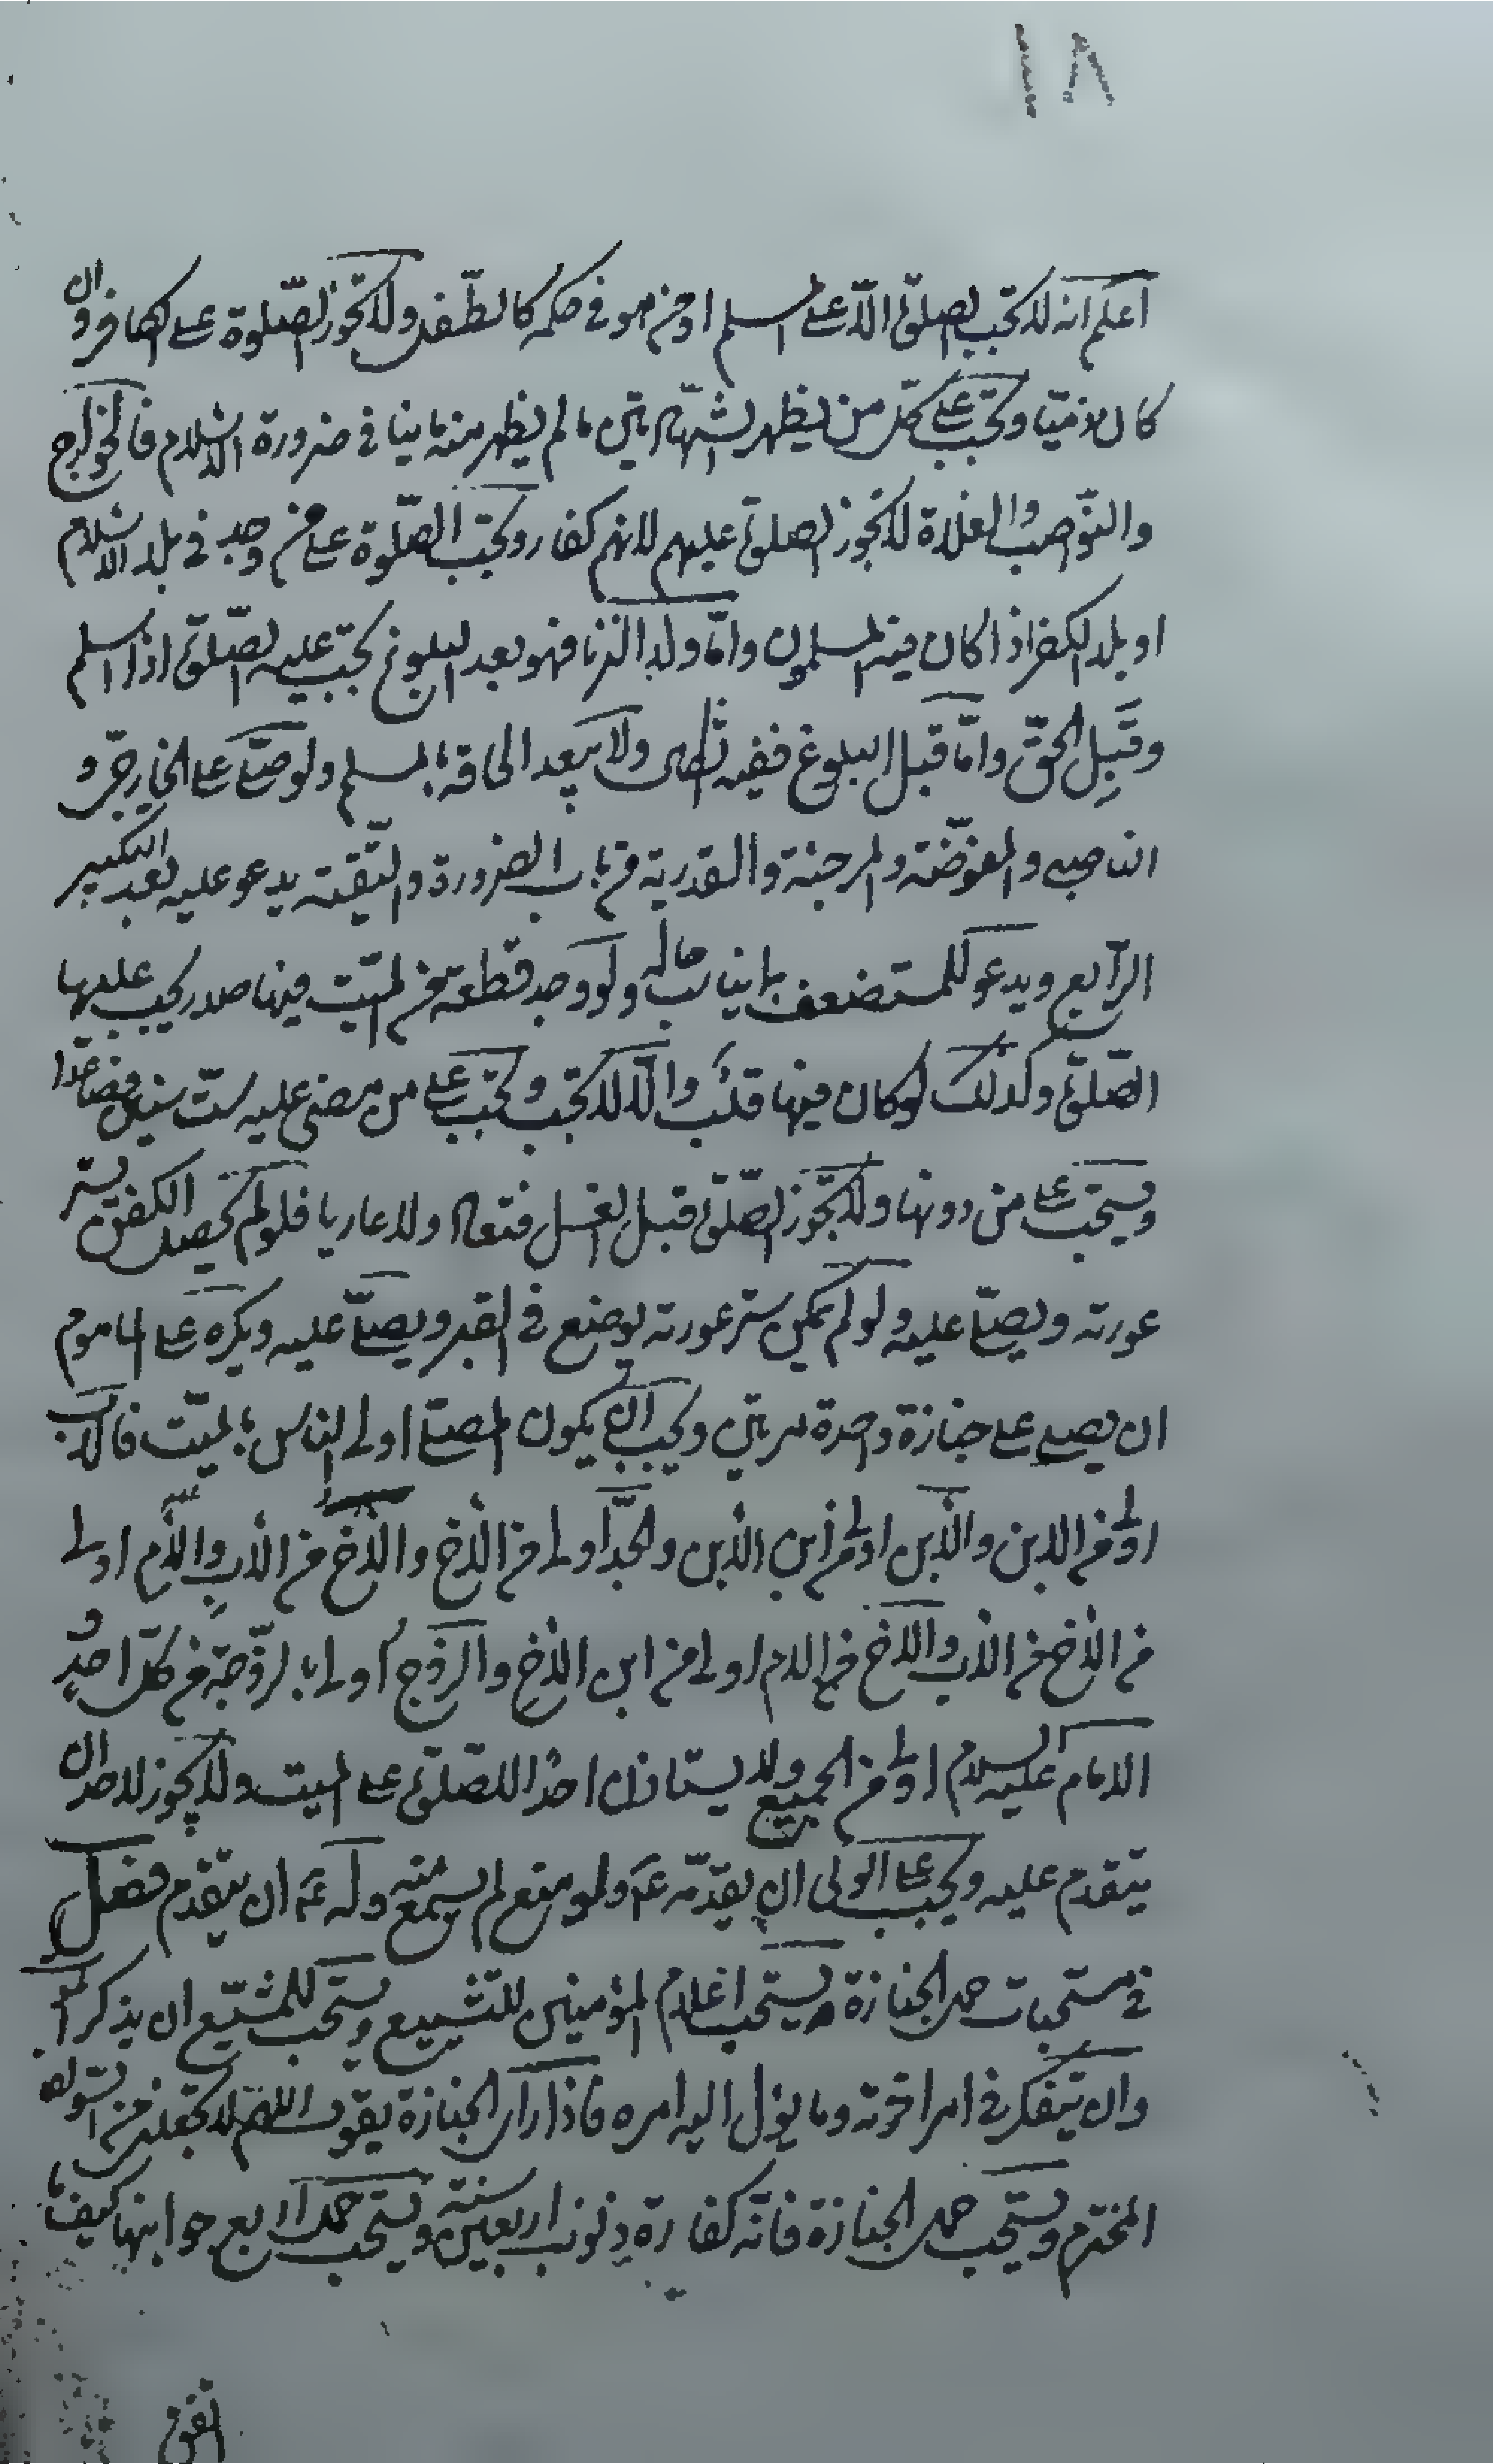 ١٨
اعلم انه لا تجب الصلوة الّا على المسلم او من هو في حكمه كالطّفل ولا تجوز الصّلوة على الكافر وان
كان ذميّا وتجب على كلّ من يظهر الشهادتين ما لم يظهر منه ما ينافي ضرورة الاسلام فالخوارج
والنّواصب والغلاة لا تجوز الصلوة عليهم لانهم كفار وتجب الصّلوة على من وجد في بلد الاسلام
او بلد الكفر اذا كان فيه المسلمون وامّا ولد الزنا فهو بعد البلوغ تجب عليه الصّلوة اذا اسلم
وقَبِل الحقّ وامّا قبل البلوغ ففيه ولا يبعد الحاقه بالمسلم ولو صلّى على الخارجيّ و
الناصبي والمفوّضة والمرجئة والقدرية من باب الضرورة والتّقيّة يدعو عليه بعد التكبير
الرّابع ويدعو للمستضعف بما يناسب حاله ولو وجد قطعة من الميّت فيها صدر يجب عليها
الصّلوة وكذلك لو كان فيها قلب والّا لا تجب وتجب على من مضى عليه ستّ سنين فصاعدا
ويستحب على من دونها ولا تجوز الصّلوة قبل الغسل ولا عاريا فلو لم يحصل الكفن يستر
عورته ويصلّى عليه ولو لم يمكن ستر عورته يوضع في القبر ويصلّى عليه ويكره على الماموم
ان يصلي على جنازة واحدة مرتين ويجب ان يكون المصلّي اولى الناس بالميّت فالاب
اولى من الابن والابن اولى من ابن الابن والجدّ اولى من الأخ والأخ من الأب والأم اولى
من الأخ من الأب والأخ من الام اولى من ابن الأخ والزوج اولى بالزّوجة من كلّ احدٍ
الامام عليه السلام اولى من الجميع ولا يستاذن احدًا للصّلوة على الميت ولا يجوز لاحد ان
يتقدم عليه ويجب على الولى ان يقدّمه عَ ولو منع لم يسمع منه وله عَ ان يتقدم فصل
في مستحبات حمل الجنازة يستحب اعلام المؤمنين للتشييع ويستحب للمشيّع ان يذكر الموت
وان يتفكر في امر اخرته وما يؤل اليه امره فاذا راى الجنازة يقول اللهم لا تجعلني من السواد
المخترم ويستحب حمل الجنازة فانّه كفارة ذنوب اربعين سنة ويستحب حمل اربع جوانبها كيف ما
اتفق